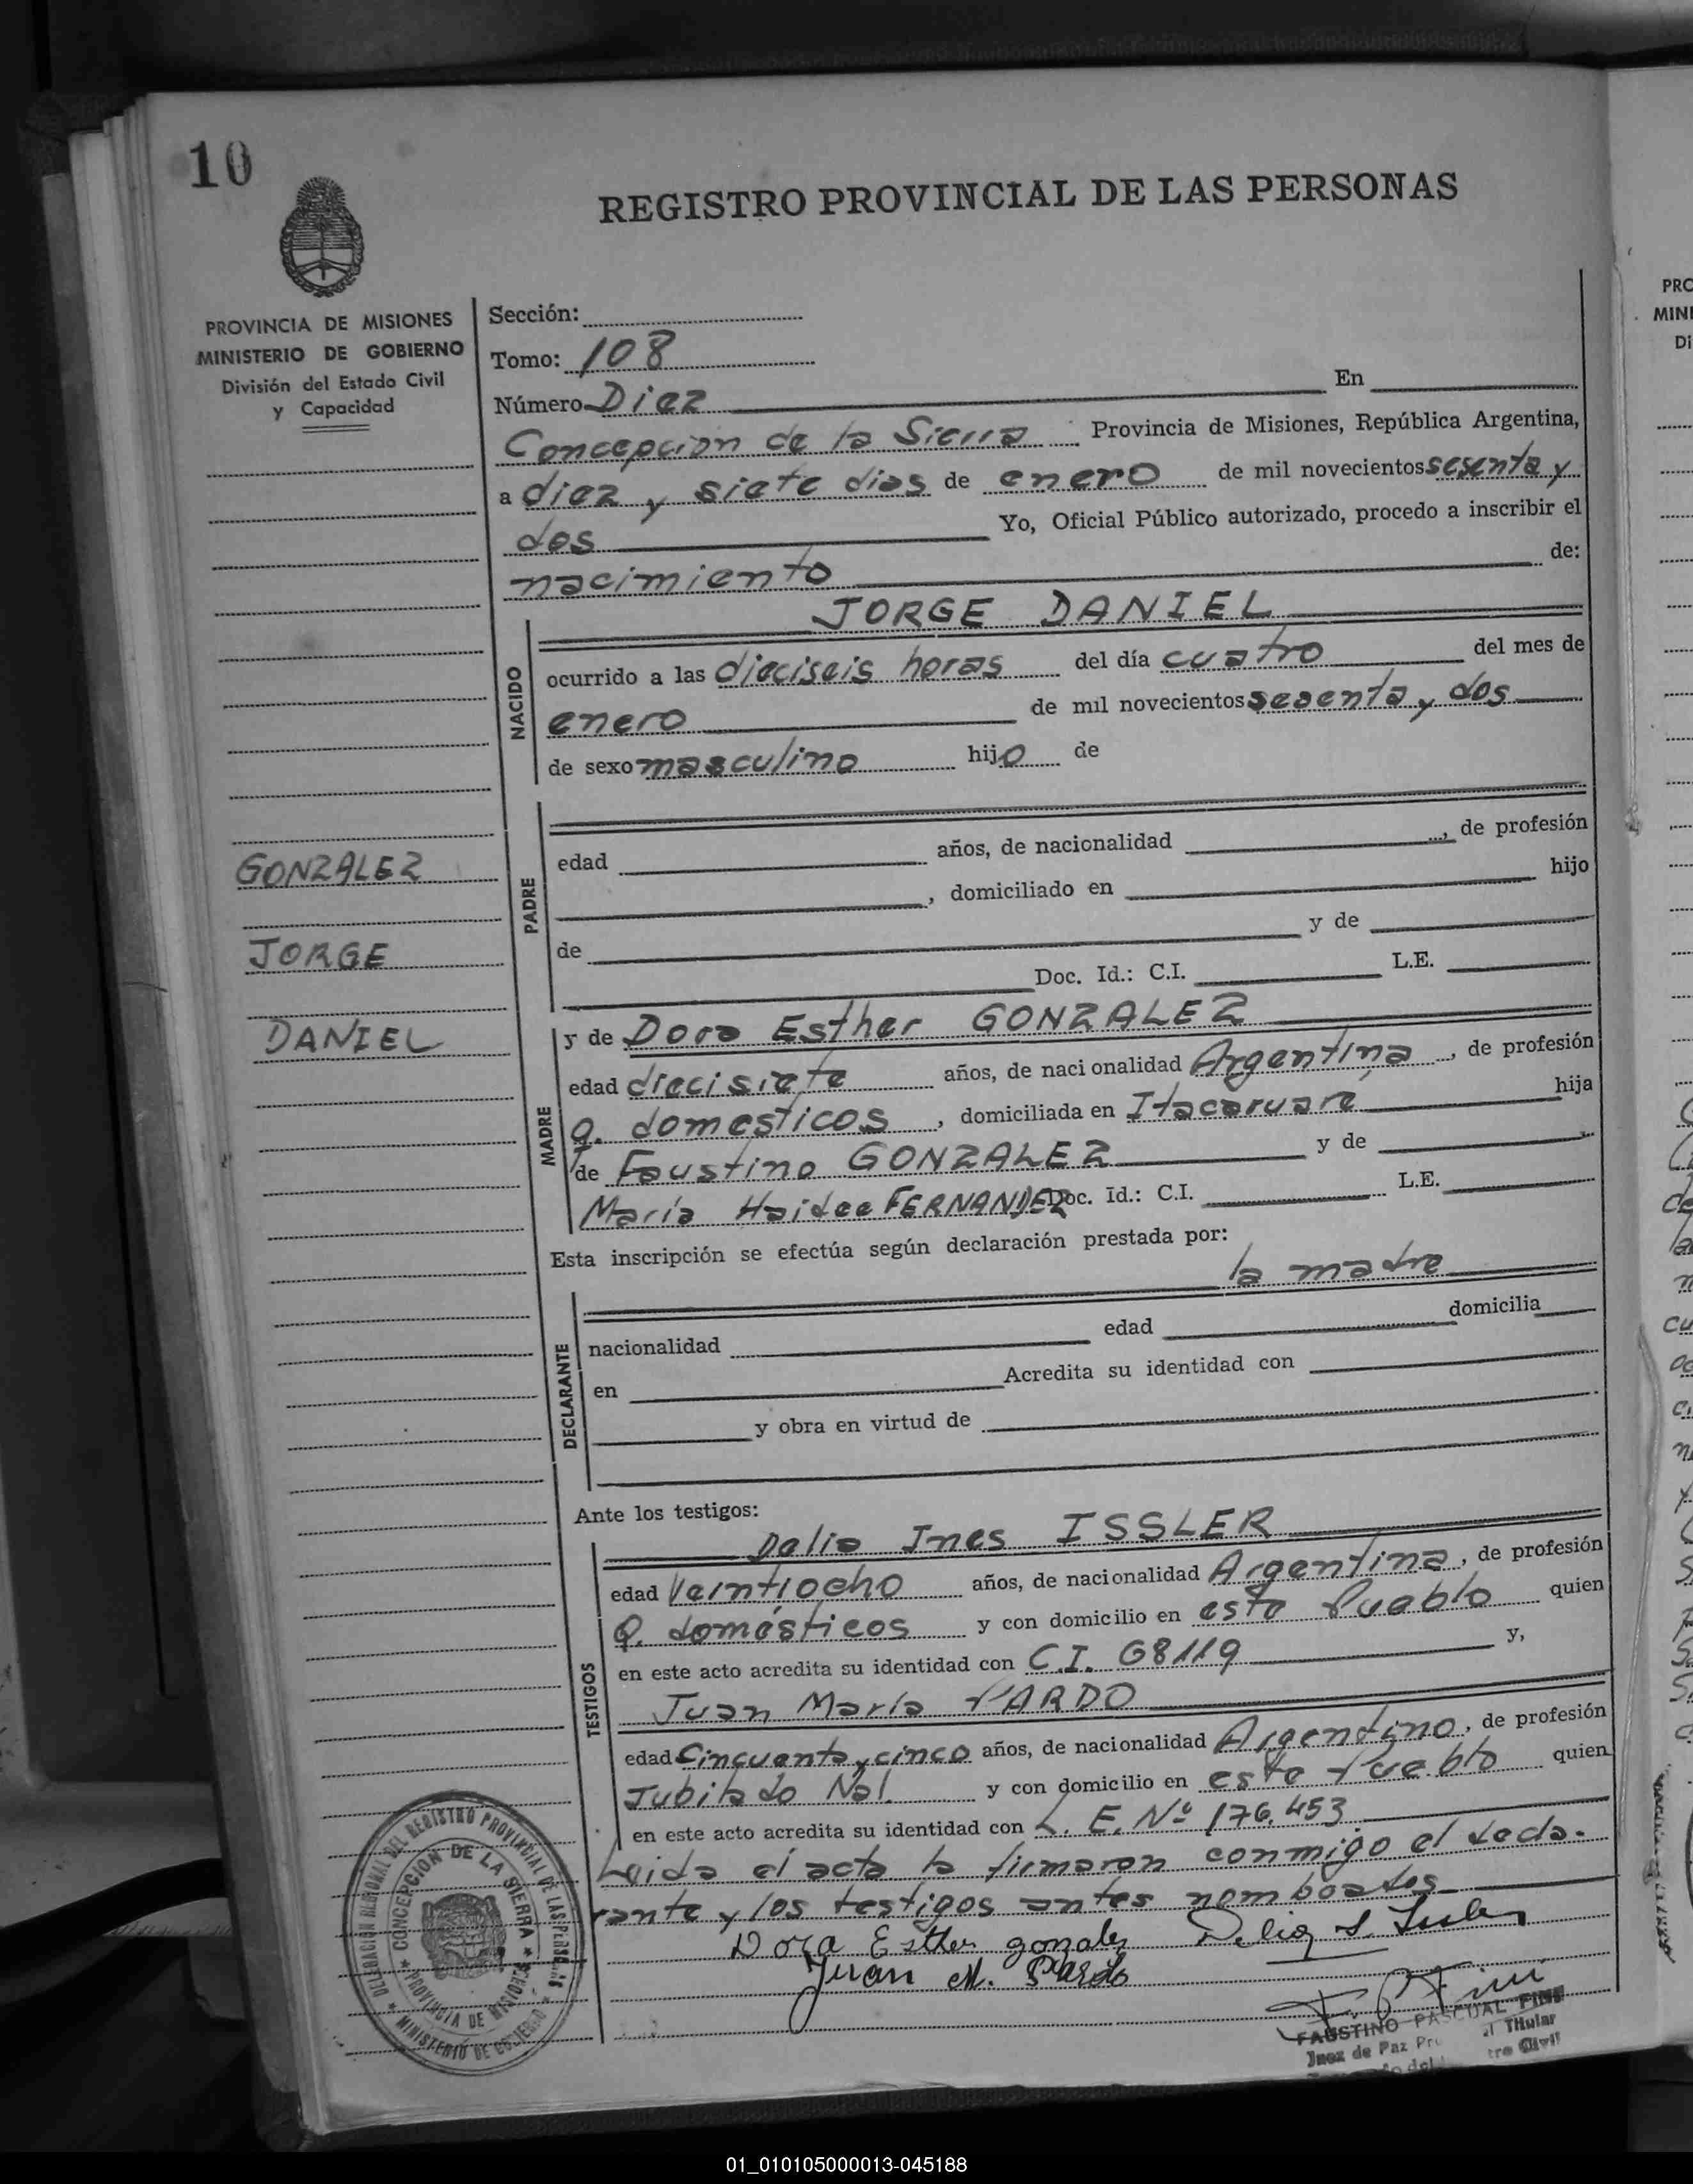 10
REGISTRO PROVINCIAL DE LAS PERSONAS
PROVINCIA DE MISIONES
MINISTERIO DE GOBIERNO
División del Estado Civil
y Capacidad
Sección:
Tomo: 108
Número Diez En
Concepcion de la Sierra Provincia de Misiones, República Argentina,
a diez y siete dias de enero de mil novecientos sesenta y
dos Yo, Oficial Público autorizado, procedo a inscribir el
nacimiento de:
JORGE DANIEL
NACIDO
ocurrido a las dieciseis horas del día cuatro del mes de
enero de mil novecientos sesenta y dos
de sexo masculino hijo de
PADRE
edad años, de nacionalidad , de profesión
, domiciliado en hijo
de y de
Doc. Id.: C.I. L.E.
GONZALEZ
JORGE
DANIEL
MADRE
y de Dora Esther GONZALEZ
edad diecisiete años, de nacionalidad Argentina , de profesión
q. domesticos , domiciliada en Itacaruaré hija
de Faustino GONZALEZ y de
María Haidee FERNANDEZ Doc. Id.: C.I. L.E.
Esta inscripción se efectúa según declaración prestada por:
la madre
DECLARANTE
nacionalidad edad domicilia
en Acredita su identidad con
y obra en virtud de
Ante los testigos:
TESTIGOS
Delia Ines ISSLER
edad Veintiocho años, de nacionalidad Argentina, de profesión
Q. domésticos y con domicilio en este Pueblo quien
en este acto acredita su identidad con C.I. 68119 y,
Juan María PARDO
edad Cincuenta y cinco años, de nacionalidad Argentino, de profesión
Jubilado Nal. y con domicilio en este Pueblo quien
en este acto acredita su identidad con L. E. Nº 176.453
Leida el acta la firmaron conmigo el decla-
rante y los testigos antes nombrados
Dora Esther gonzalez Delia I. Issler
Juan M. Pardo
F. P. Fini
FAUSTINO PASCUAL FINI
Juez de Paz Titular
Civil
DELEGACION REGIONAL DEL REGISTRO PROVINCIAL DE LAS PERSONAS
CONCEPCION DE LA SIERRA
PROVINCIA DE MISIONES
MINISTERIO DE GOBIERNO
PRO
MINI
Di
01_010105000013-045188